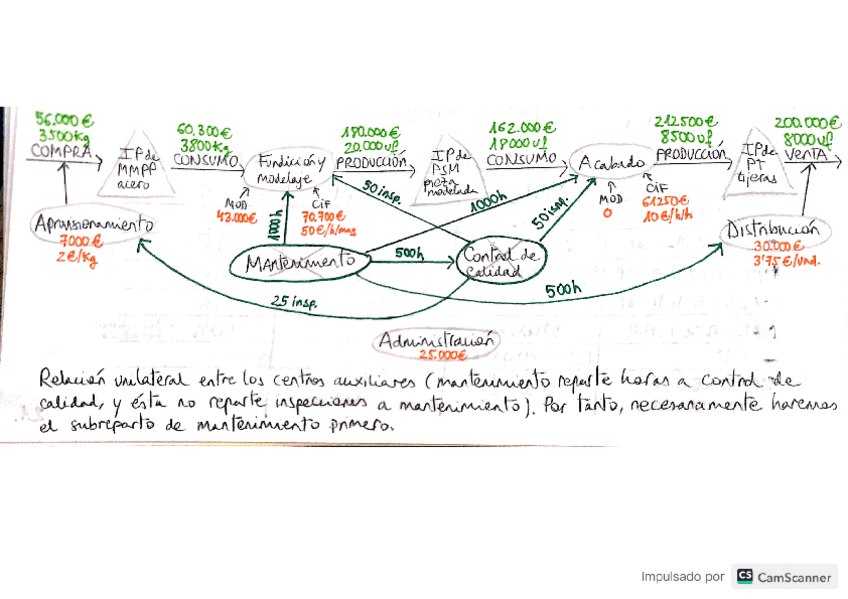 56.000€
3500kg
COMPRA
IP de
MMPP
acero
60.300€
3800kg
CONSUMO
Fundición y
modelaje
180.000€
20.000uf
PRODUCCIÓN
IP de
PSM
pieza
modelada
162.000€
18000uf
CONSUMO
Acabado
212500€
8500uf
PRODUCCIÓN
IP de
PT
tijeras
200.000€
8000uf
VENTA
MOD
43.000€
CIF
70.700€
50€/h/maq
MOD
0
CIF
61250€
10€/h/h
Aprovisionamiento
7000€
2€/kg
1000h
50 insp.
1000h
50 insp.
Mantenimiento
500h
Control de
calidad
Distribución
30.000€
3'75€/und.
25 insp.
500h
Administración
25.000€
Relación unilateral entre los centros auxiliares (mantenimiento reparte horas a control de
calidad, y ésta no reparte inspecciones a mantenimiento). Por tanto, necesariamente haremos
el subreparto de mantenimiento primero.
Impulsado por CS CamScanner